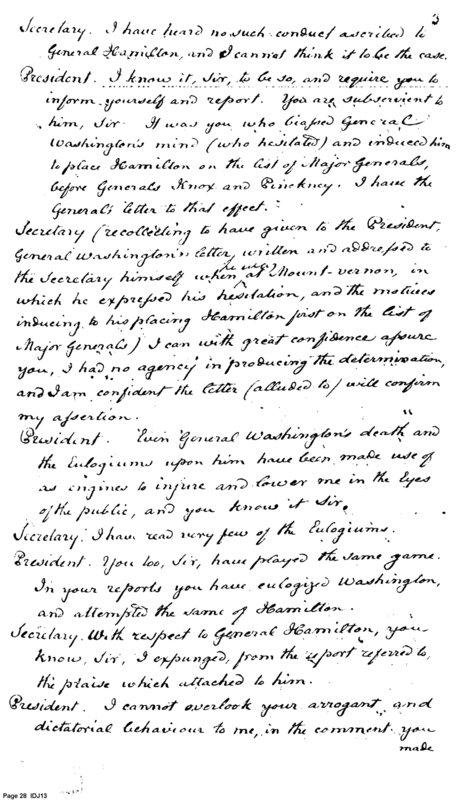 3
Secretary. I have heard no such conduct ascribed to
General Hamilton, and I cannot think it to be the case.
President. I know it, Sir, to be so, and require you to
inform yourself and report. You are subservient to
him, Sir. It was you who biassed General
Washington's mind (who hesitated) and induced him
to place Hamilton on the list of Major Generals,
before Generals Knox and Pinckney. I have the
General's letter to that effect.
Secretary (recollecting to have given to the President,
General Washington's letter, written and addressed to
the Secretary himself when he was at Mount-vernon, in
which he expressed his hesitation, and the motives
inducing to his placing Hamilton first on the list of
Major Generals) I can with great confidence assure
you, I had no agency in producing the determination,
and I am confident the letter (alluded to) will confirm
my assertion.
President. "Even General Washington's death" and
the Eulogiums upon him have been made use of
as engines to injure and lower me in the Eyes
of the public, and you know it Sir.
Secretary. I have read very few of the Eulogiums.
President. You too, Sir, have played the same game.
In your reports you have eulogized Washington,
and attempted the same of Hamilton.
Secretary. With respect to General Hamilton, you
know, Sir, I expunged, from the report referred to,
the praise which attached to him.
President. I cannot overlook your arrogant and
dictatorial behaviour to me, in the comment you
made
Page 28 IDJ13